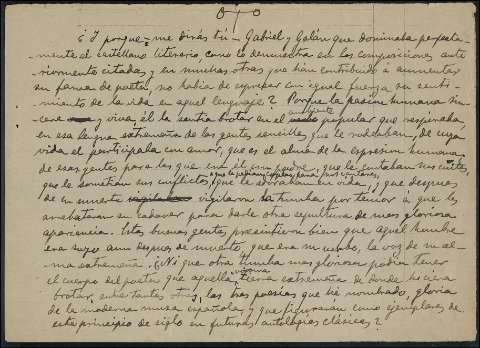 ¿Y porque - me dirás tú - Gabriel y Galán que dominaba perfecta-
mente el castellano literario, como lo demuestra en las composiciones ante-
riormente citadas y en muchas otras que han contribuido á aumentar
su fama de poeta, no había de expresar con igual fuerza su senti-
miento de la vida en aquel lenguaje? Porque la pasion humana sin-
cera y viva, él la sentía brotar en el ambiente popular que respiraba,
en esa lengua extremeña de las gentes sencillas que le rodeaban, de cuya
vida él participaba con amor, que es el alma de la expresion humana,
de esas gentes para las que era él un padre, que le contaban sus cuitas,
que le sometían sus conflictos, que le pedían coplas para sus
que le adoraban en vida, y que despues
de su muerte vigilaron la tumba por temor a que les
arrebataran su cadaver para darle otra sepultura de mas gloriosa
apariencia. Estas buenas gentes presintieron bien que aquel hombre
era suyo aun despues de muerto, que era su verbo, la voz de su al-
ma extremeña. ¿Ni que otra tumba mas gloriosa podía tener
el cuerpo del poeta que aquella misma tierra extremeña de donde hiciera
brotar, entre tantas otras, las tres poesías que he nombrado, gloria
de la moderna musa española, y que figurarán como ejemplares de
este principio de siglo en futuras antologías clásicas?